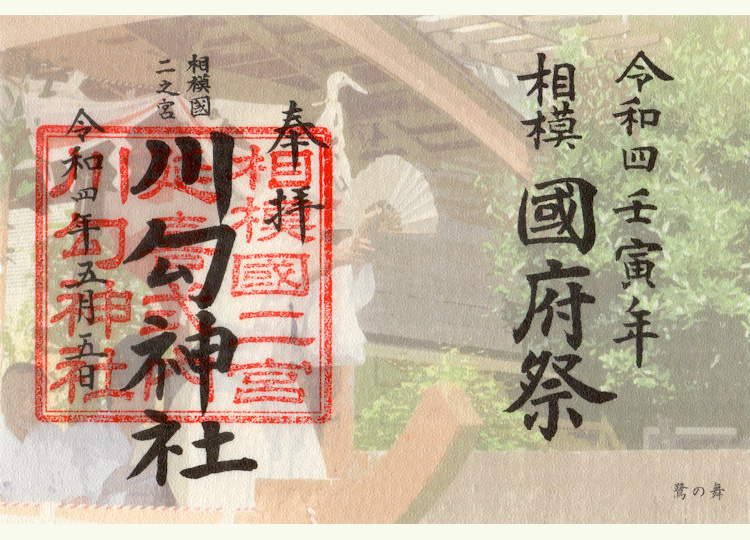 令和四壬寅年
相模
國府祭
奉拝
相模國
二之宮
川勾神社
令和四年五月五日
相模國二宮
延喜式内
川勾神社
鷺の舞